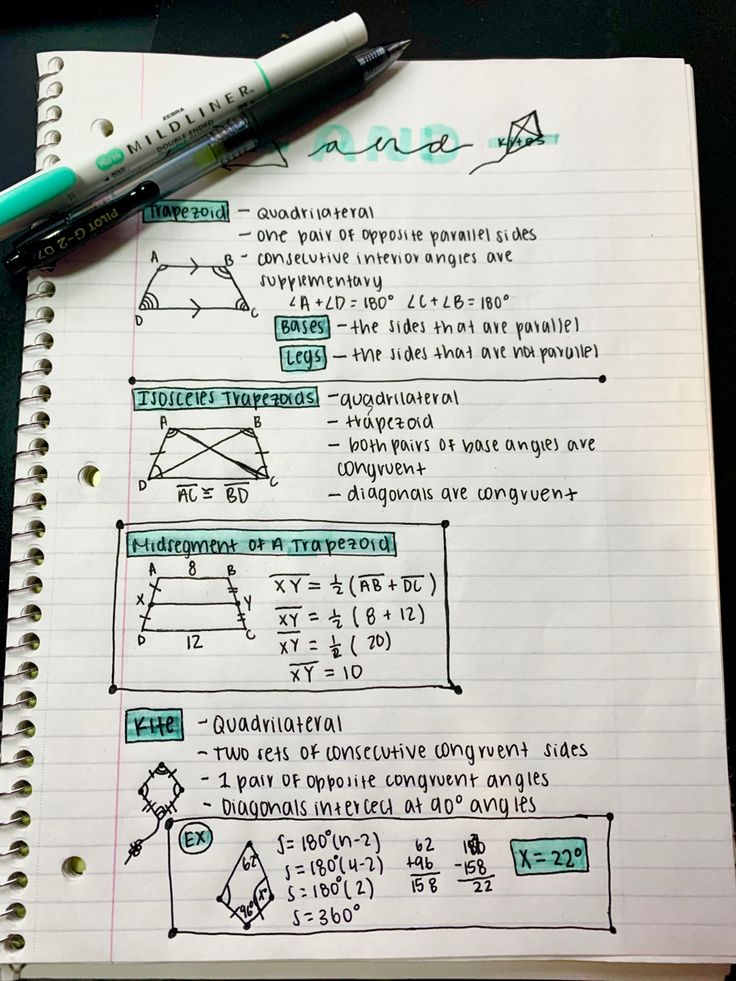 ZEBRA
MILDLINER™
DOUBLE ENDED
PILOT G-2 07
AND
and
Kites
Trapezoid - Quadrilateral
- one pair of opposite parallel sides
- consecutive interior angles are
supplementary
A B
D C
∠A + ∠D = 180° ∠C + ∠B = 180°
Bases - the sides that are parallel
Legs - the sides that are not parallel
Isosceles Trapezoids - quadrilateral
- trapezoid
- both pairs of base angles are
congruent
- diagonals are congruent
A B
D C
AC ≅ BD
Midsegment of A Trapezoid
A 8 B
X Y
D C
12
XY = ½ (AB + DC)
XY = ½ (8 + 12)
XY = ½ (20)
XY = 10
Kite - Quadrilateral
- Two sets of consecutive congruent sides
- 1 pair of opposite congruent angles
- Diagonals intercect at 90° angles
EX
62°
96° x°
S = 180°(n-2)
S = 180°(4-2)
S = 180°(2)
S = 360°
62
+96
158
180
-158
22
X = 22°